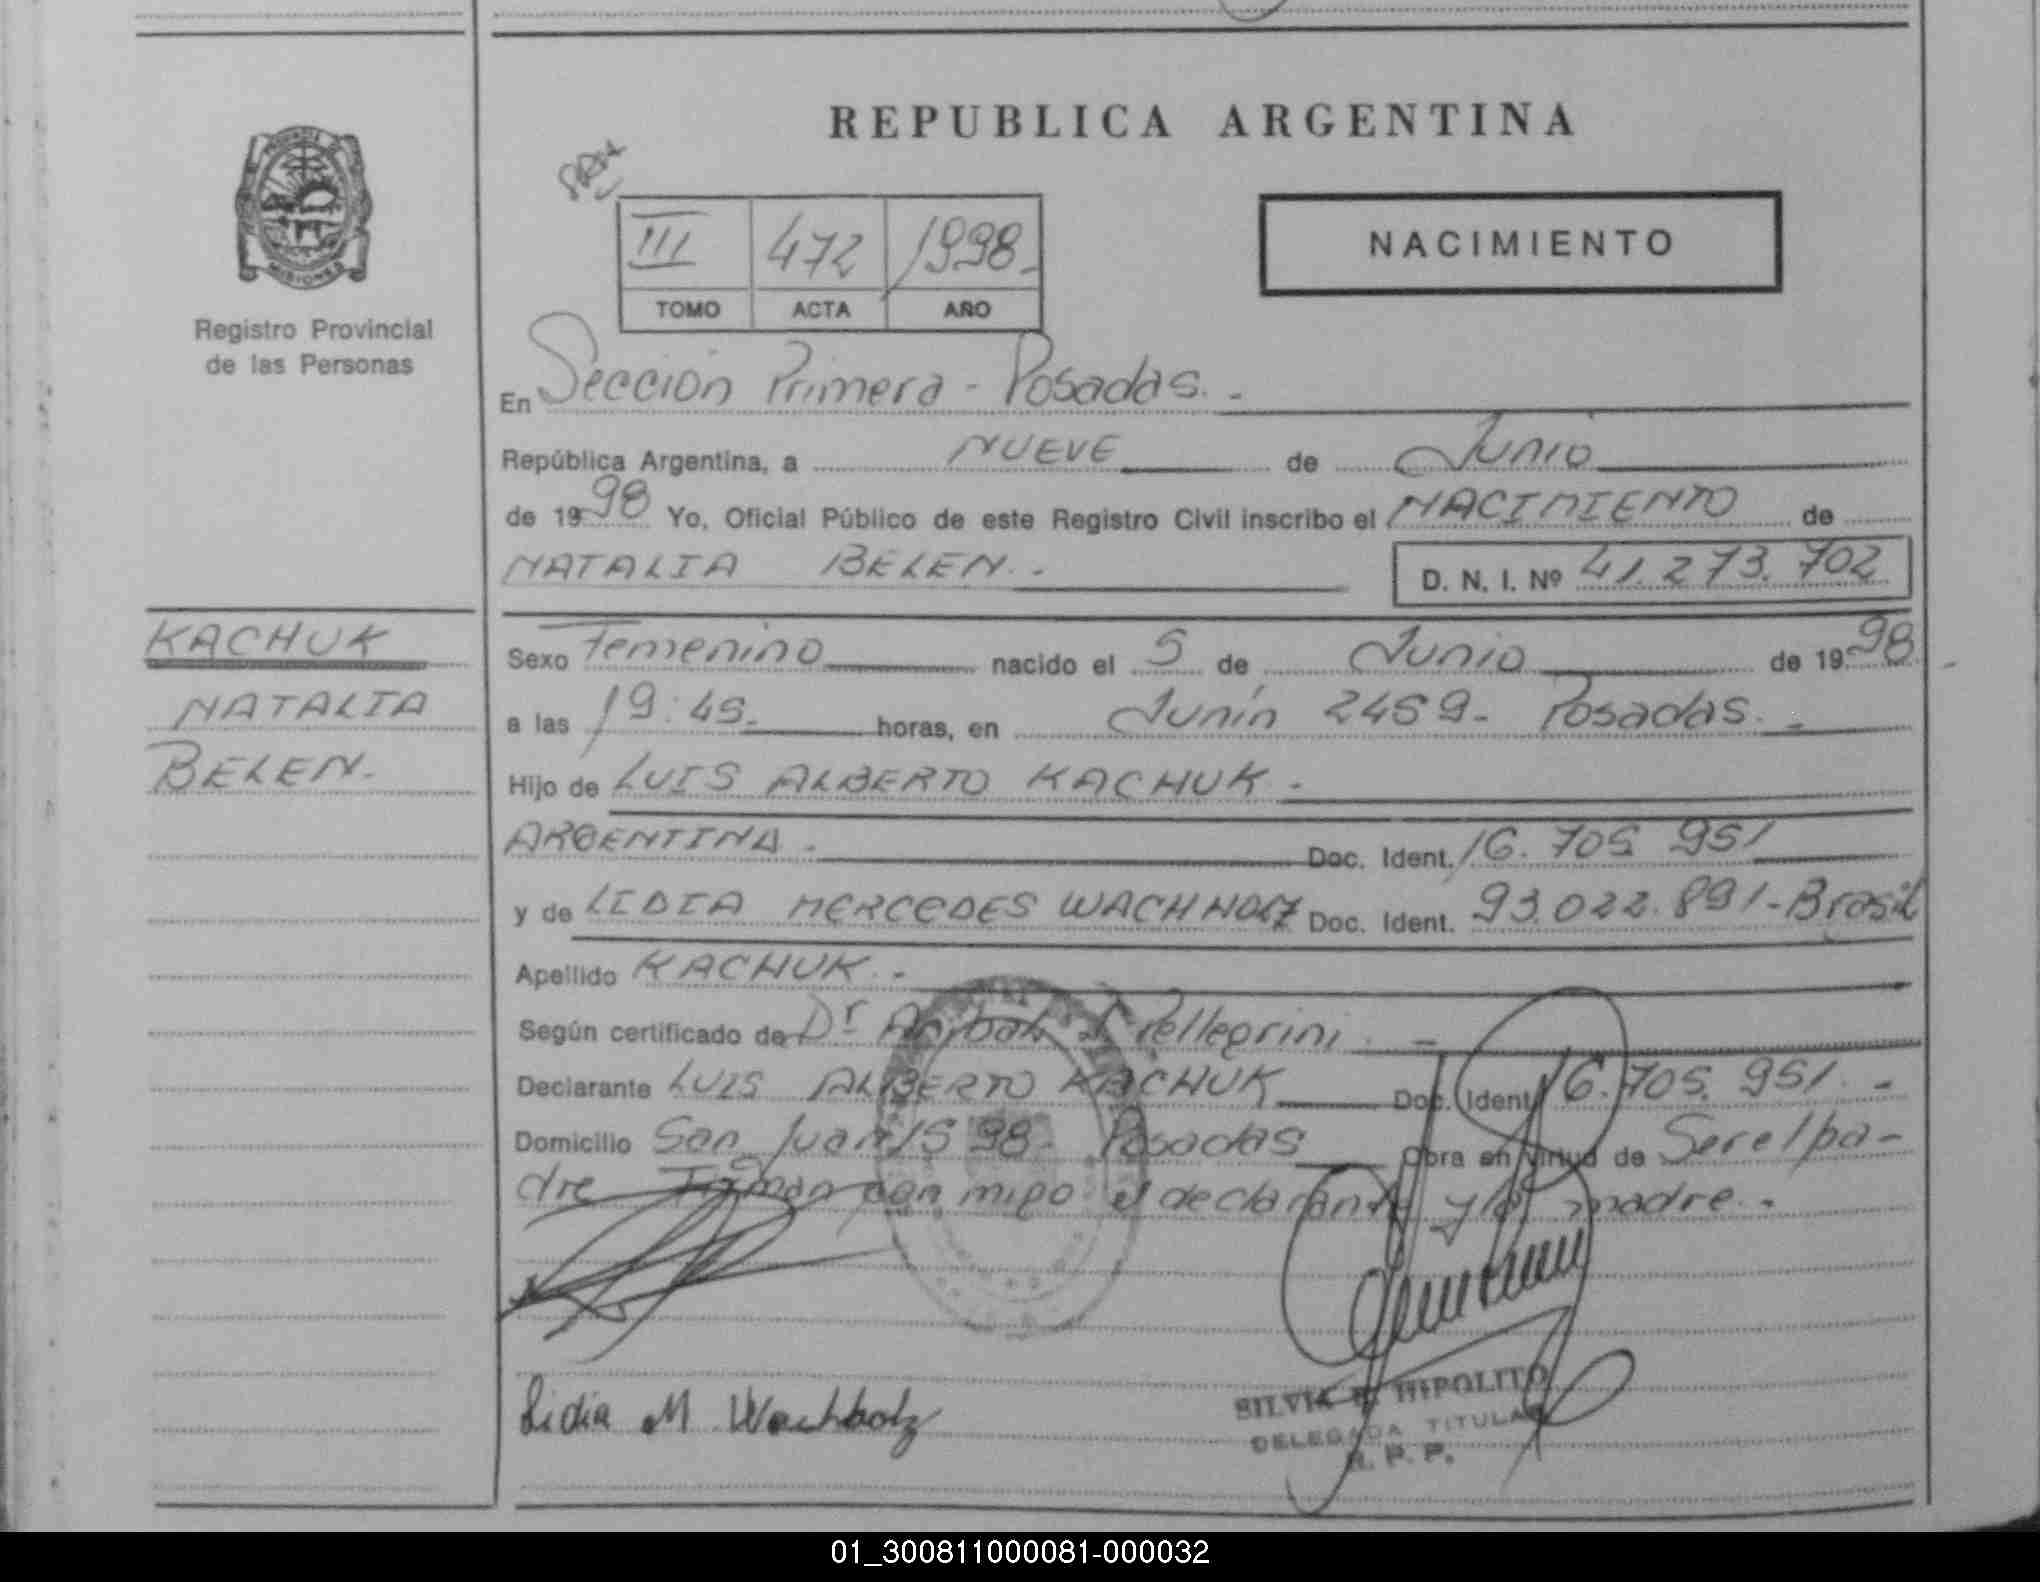 REPUBLICA ARGENTINA
PROVINCIA DE MISIONES
Registro Provincial
de las Personas
III 472 1998.-
TOMO ACTA AÑO
NACIMIENTO
En Sección Primera - Posadas. -
República Argentina, a NUEVE de Junio
de 1998 Yo, Oficial Público de este Registro Civil inscribo el NACIMIENTO de
NATALIA BELEN. - D. N. I. Nº 41.273.702
KACHUK
NATALIA
BELEN.
Sexo Femenino nacido el 5 de Junio de 1998
a las 19:45. horas, en Junín 2459- Posadas. -
Hijo de LUIS ALBERTO KACHUK. -
ARGENTINA. Doc. Ident. 16.705 951
y de LIDIA MERCEDES WACHHOLZ Doc. Ident. 93.022.891-Brasil
Apellido KACHUK. -
Según certificado de Dr Anibal Pellegrini. -
Declarante LUIS ALBERTO KACHUK Doc. Ident. 16.705.951. -
Domicilio San Juan 1598- Posadas Obra en virtud de Ser el pa-
dre Firman con migo el declarante y la madre. -
Lidia M Wachholz
SILVIA HIPOLITO
DELEGADA TITULAR
R. P. P.
01_300811000081-000032